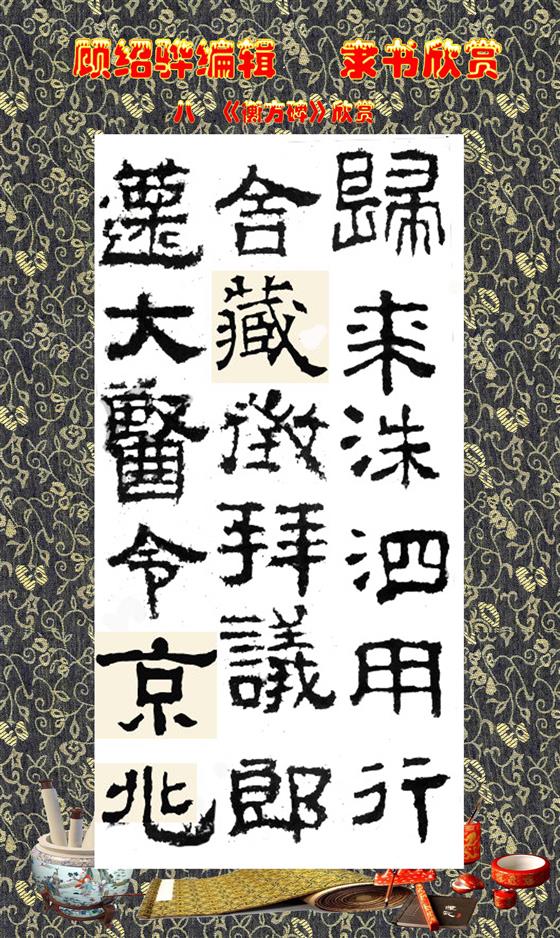 顾绍骅编辑 隶书欣赏
八 《衡方碑》欣赏
歸來洙泗用行
舍藏徵拜議郎
遷大醫令京兆